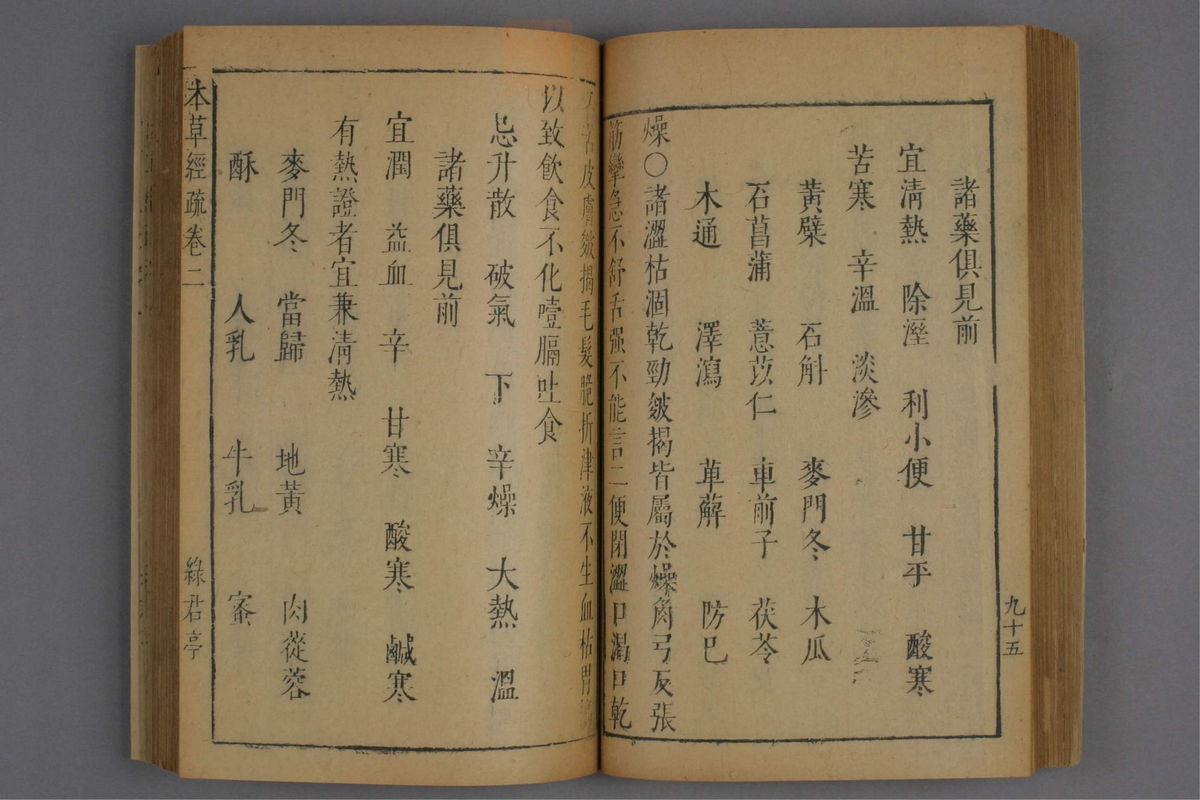 諸藥俱見前
宜淸熱 除溼 利小便 甘平 酸寒
苦寒 辛溫 淡滲
黃檗 石斛 麥門冬 木瓜
石菖蒲 薏苡仁 車前子 茯苓
木通 澤瀉 萆薢 防已
燥○諸澀枯涸乾勁皴揭皆屬於燥角弓反張
筋攣急不舒舌强不能言二便閉澀口渴口乾
舌皮膚皴揭毛髮脆折津液不生血枯胃
以致飲食不化噎膈吐食
忌升散 破氣 下 辛燥 大熱 溫
諸藥俱見前
宜潤 益血 辛 甘寒 酸寒 鹹寒
有熱證者宜兼淸熱
麥門冬 當歸 地黃 肉蓯蓉
酥 人乳 牛乳 蜜
九十五
本草經疏卷二
綠君亭